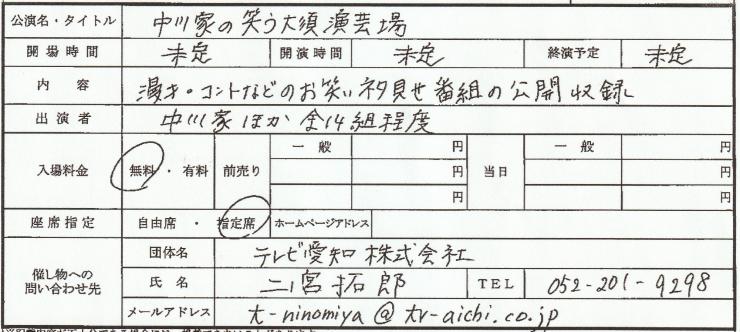 公演名・タイトル 中川家の笑う大須演芸場
開場時間 未定 開演時間 未定 終演予定 未定
内容 漫才・コントなどのお笑いネタ見せ番組の公開収録
出演者 中川家ほか全14組程度
入場料金 無料・有料 前売り 一般 円 当日 一般 円
円 円
円 円
座席指定 自由席・指定席 ホームページアドレス
催し物への問い合わせ先 団体名 テレビ愛知株式会社
氏名 二宮拓郎 TEL 052-201-9298
メールアドレス t-ninomiya@tv-aichi.co.jp